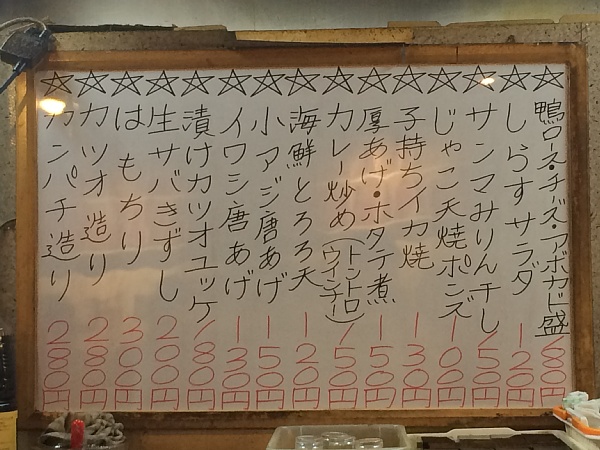 ☆鴨ロース・チーズ・アボカド盛 180円
☆しらすサラダ 120円
☆サンマみりん干し 150円
☆じゃこ天焼ポンズ 100円
☆子持ちイカ焼 130円
☆厚あげ・ホタテ煮 150円
☆カレー炒め(トントロ ウインナー) 150円
☆海鮮とろろ天 120円
☆小アジ唐あげ 150円
☆イワシ唐あげ 130円
☆漬けカツオユッケ 180円
☆生サバきずし 200円
☆はもちり 300円
☆カツオ造り 280円
☆カンパチ造り 280円